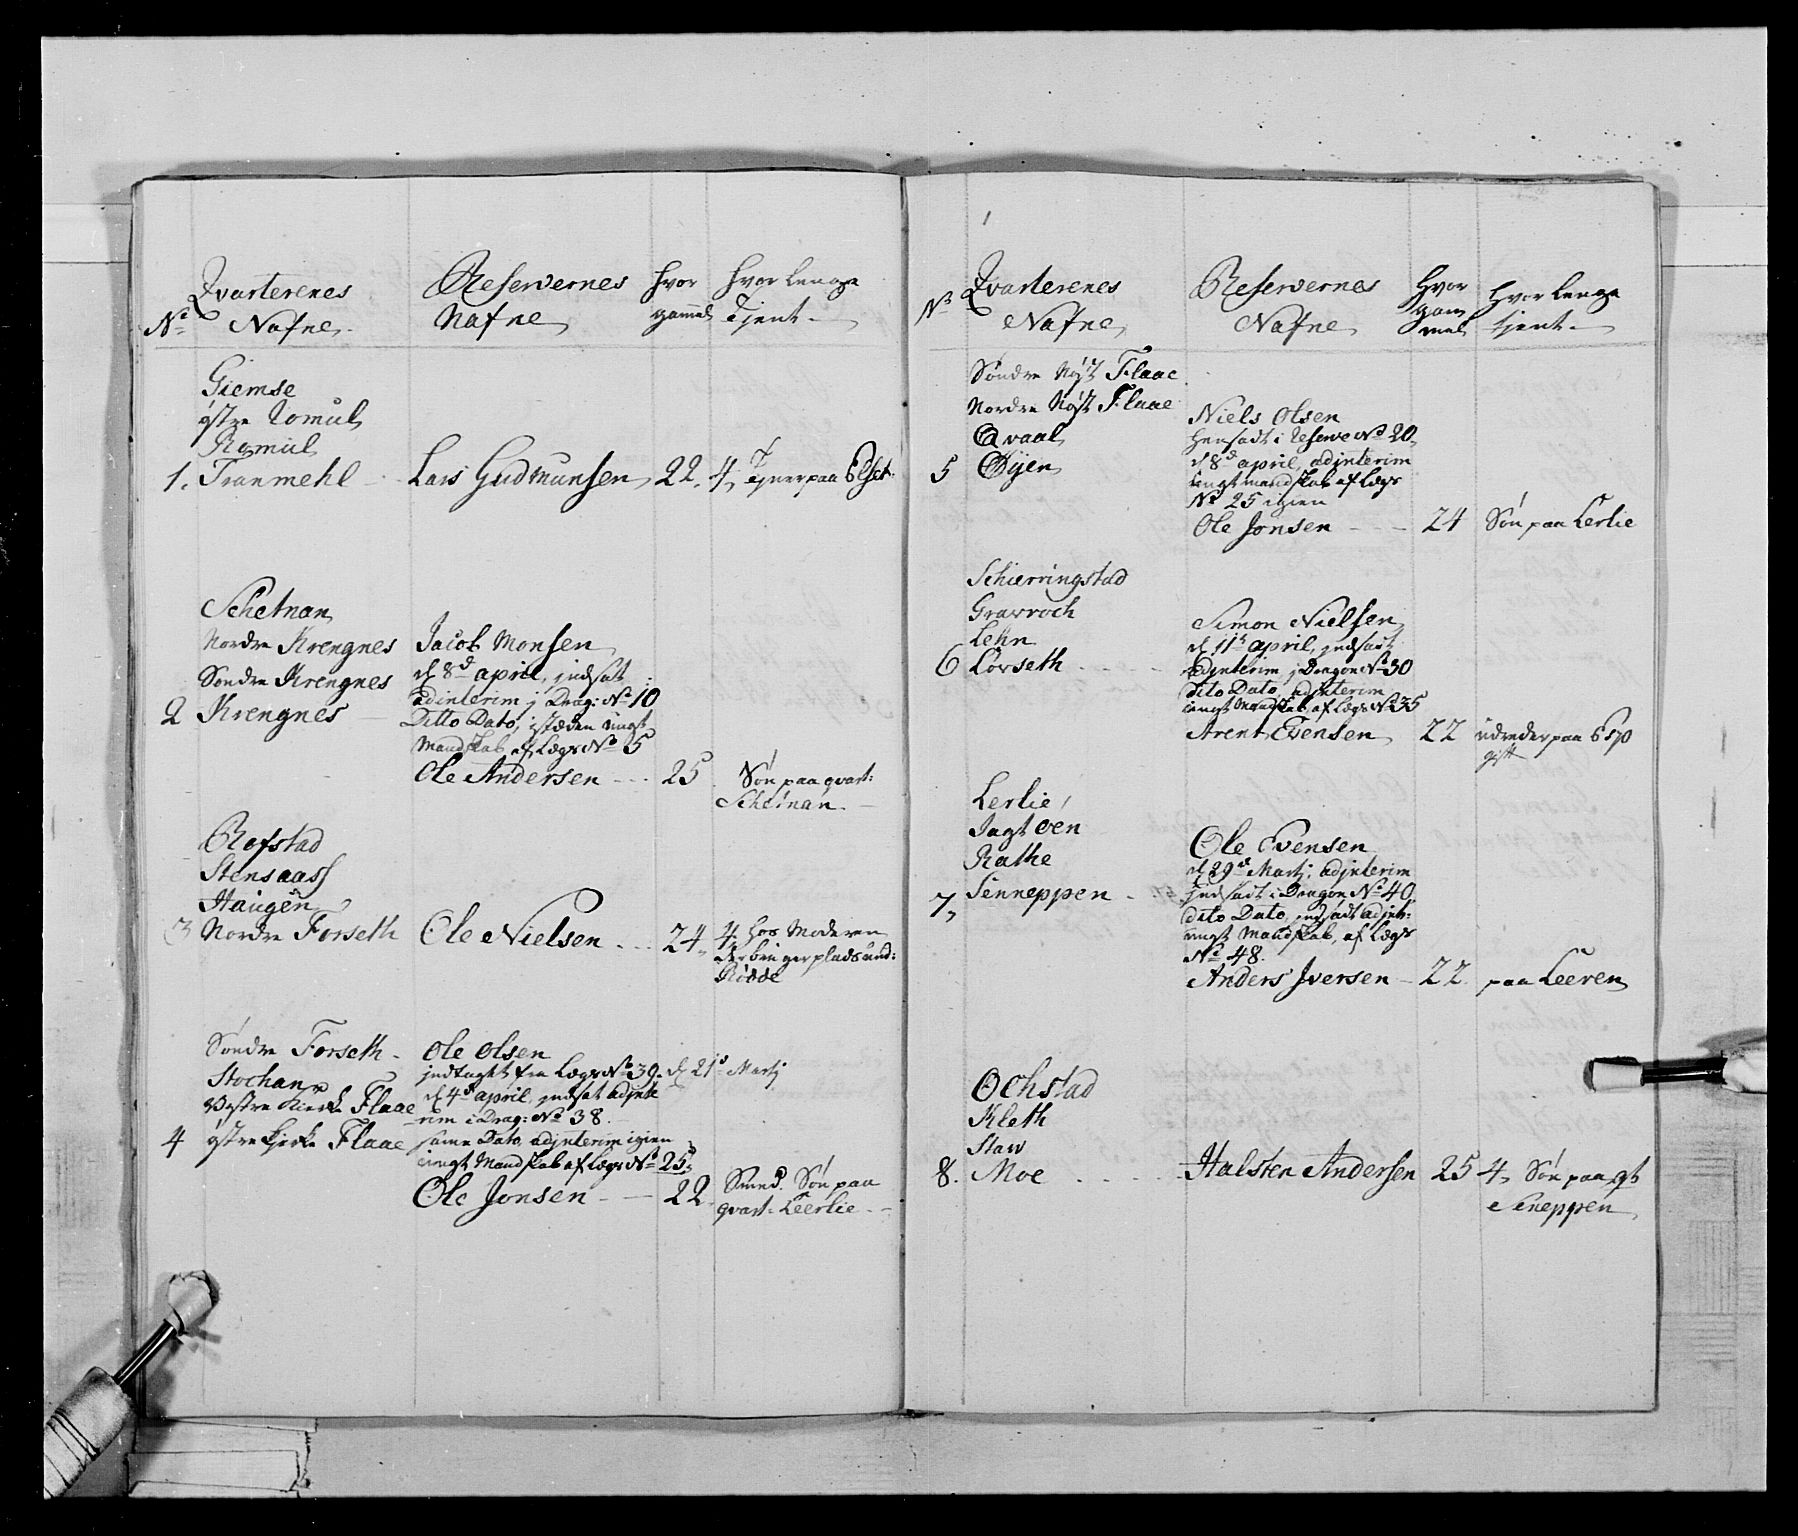 No Qvarterenes Nafne
Reservernes Nafne
Hvor gammel
Hvor lenge Tjent
Giemse
östre Romul
Romul
1. Tranmehl
Lars Gudmunsen 22. 4
Tjener paa Elset
Schetnan
Nordre Krengnes
Søndre Krengnes
2 Krengnes
Jacob Monsen
d 8d april, indsat
adinterim j Drag: No 10
Ditto Dato, istæden ungt
Mandskab af Lægs No 5
Ole Andersen 25
Søn paa qvart:
Schetnan
Rofstad
Stensaas
Haugen
3 Nordre Forseth
Ole Nielsen 24
4 hos Moderen
der bruger plads und:
Rødde
Søndre Forseth
Stochan
Vestre Kierke Flaae
4 östre Kjerke Flaae
Ole Olsen
indtagt fra Lægs No 39. d 21 Martj
d 4d april indsat adjnte
rim i Drag: No 38
same Dato adjnterim igien
ungt Mandskab af Lægs No 25
Ole Jonsen 22
Smed. Søn paa
qvart: Leerlie
No Qvarterenes Nafne
Reservernes Nafne
Hvor gam mel
Hvor lenge tjent
Søndre Nyt Flaae
Nordre Nyt Flaae
Qvaal
5 Øyen
Niels Olsen
hensadt i Reserve No 20
d 8d april, adjnterim
ungt mandskab af Lægs
No 25 igien
Ole Jonsen 24 Søn paa Lerlie
Schierringstad
Gravroch
Lehn
6 Løvseth
Simon Nielsen
d 11t april, jndsadt
adjnterim j Dragon No 30
Dito Dato, adjnterim
ungt Mandskab af Lægs No 35
Arent Evensen 22
gift
Lerlie
Jagtøen
Rathe
7, Senneppen
Ole Evensen
d 29d Martj, adjnterim
jndsadt i Dragon No 40
Dito Dato, jndsadt adjnt:
ungt Mandskab, af Lægs
No 48.
Anders Jversen 22 paa Leeren
Ochstad
Kleth
Stav
8. Moe
Halsten Andersen 25 4 Søn paa qt
Seneppen